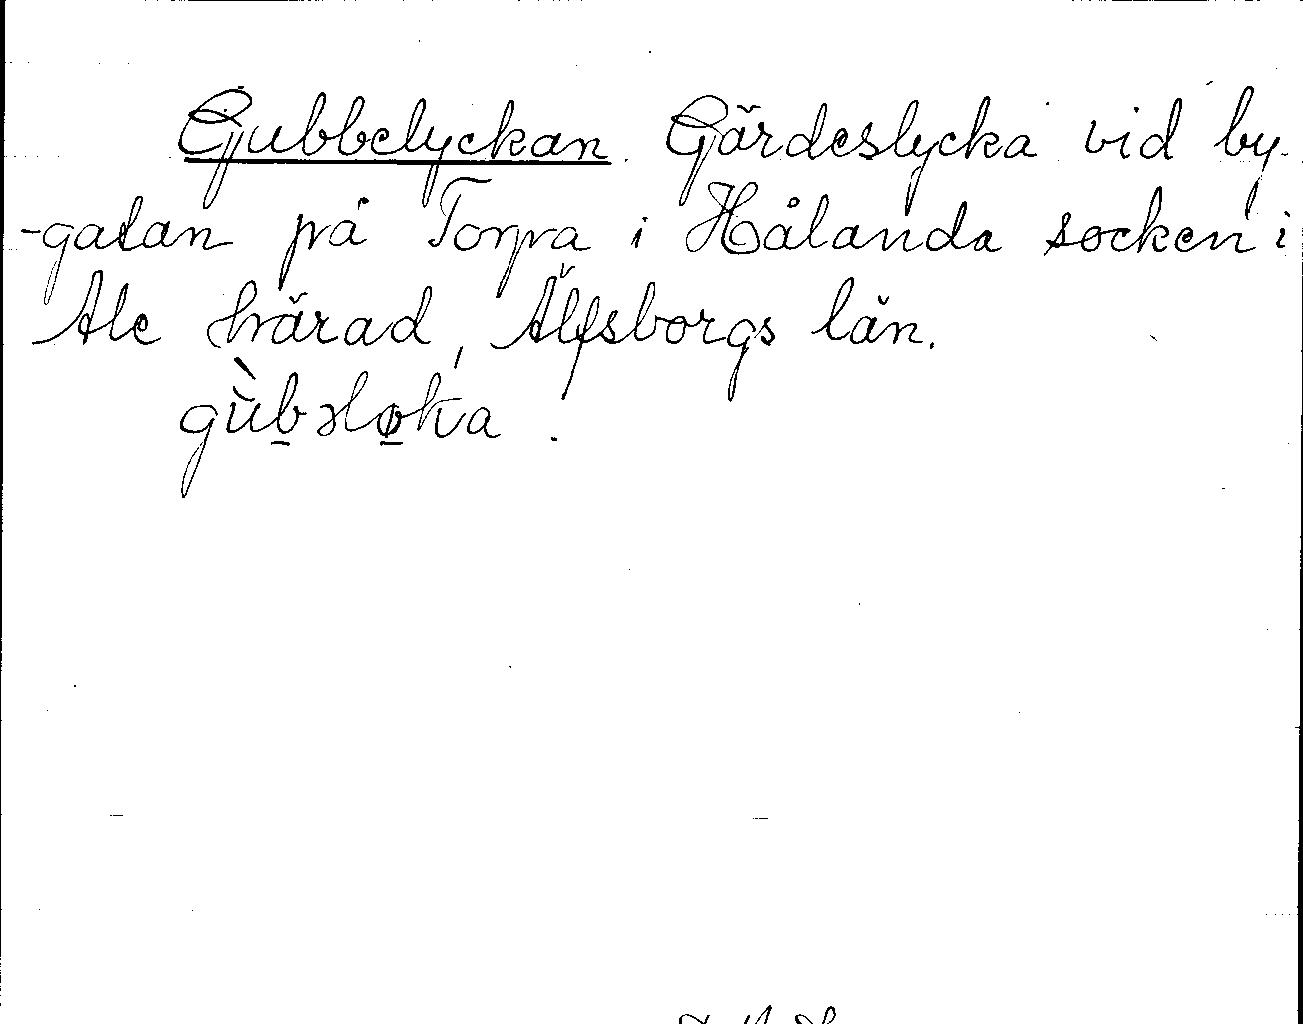 Gubbelyckan. Gärdeslycka vid by-
-gatan på Torpa i Hålanda socken i
Ale härad, Älfsborgs län.